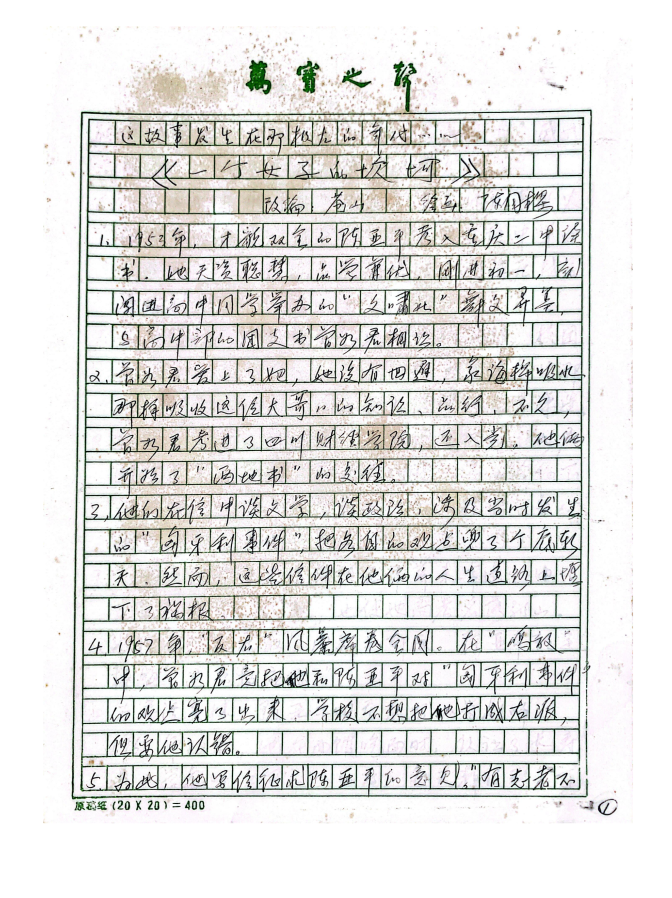 萬寳之聲
这故事发生在那极左的年代……
《一个女子的坎坷》
改编:黄山 绘画:
1. 1953年,才貌双全的陈亚平考入重庆二中读
书。她天资聪慧,品学兼优,刚进初一,就
闯进高中同学举办的“文啸社”
与高中部的团支书曾为君相识。
2. 曾为君爱上了她,她没有回避,象海棉吸水
那样吸收这位大哥口的知识、品行,不久,
曾为君考进了四川财经学院,还入党。他俩
开始了“两地书”的交往。
3. 他们在信中谈文学,谈政治,涉及当时发生
的“匈牙利事件”,把各自的观点兜了个底朝
天。然而,这些信件在他俩的人生道路上埋
下了祸根。
4. 1957年,“反右”风暴席卷全国。在“鸣放”
中,曾为君竟把他和陈亚平对“匈牙利事件”
的观点亮了出来,学校不想把他打成右派,
但要他认错。
5. 为此,他写信征求陈亚平的意见。“有志者不
原稿纸(20×20)=400
①